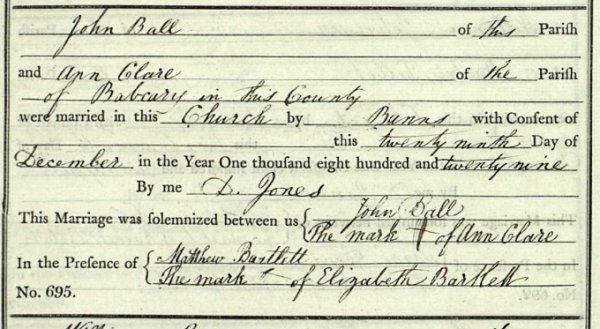 John Ball of this Parish
and Ann Clare of the Parish
of Babcary in this County
were married in this Church by Banns with Consent of
this twenty ninth Day of
December in the Year One thousand eight hundred and twenty nine
By me D. Jones
This Marriage was solemnized between us { John Ball
The mark of Ann Clare
In the Presence of { Matthew Bartlett
The mark + of Elizabeth Bartlett
No. 695.